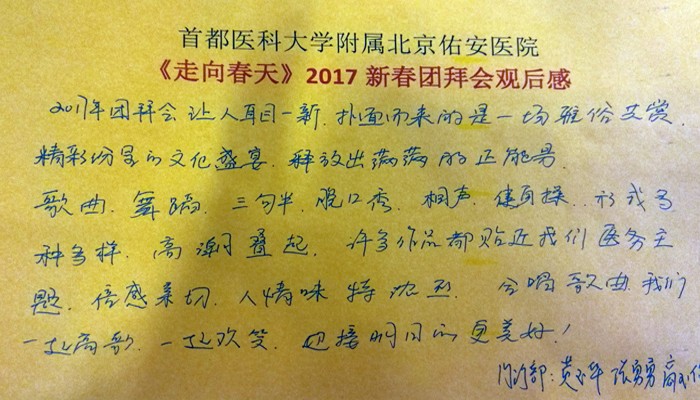 首都医科大学附属北京佑安医院
《走向春天》2017 新春团拜会观后感
2017年团拜会让人耳目一新.扑面而来的是一场雅俗共赏.
精彩纷呈的文化盛宴.释放出满满的正能量.
歌曲.舞蹈.三句半.脱口秀.相声.健身操..形式多
种多样.高潮叠起.许多作品都贴近我们医务主
题.倍感亲切.人情味特浓烈.合唱歌曲我们
一起高歌.一起欢笑.迎接明日的更美好!
门诊部:黄 华 张勇勇